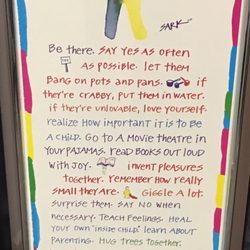 SARK
Be there. SAY YES AS OFTEN
AS POSSIBLE. let them
BANG ON POTS AND PANS. if
they're CRABBY, PUT THEM IN WATER.
if they're UNLOVABLE, LOVE YOURSELF.
realize How important it is to Be
A CHILD. Go to A Movie theatre in
YOUR PAJAMAS. reAD BOOKS OUT LOUD
WITH JOY. invent pleasures
together. remember How really
small they ARE. GIGGLE A lot.
Surprise them. SAY NO WHEN
necessary. Teach Feelings. HEAL
YOUR OWN "inside CHILD". learn ABOUT
PARENTING. HUG trees together.